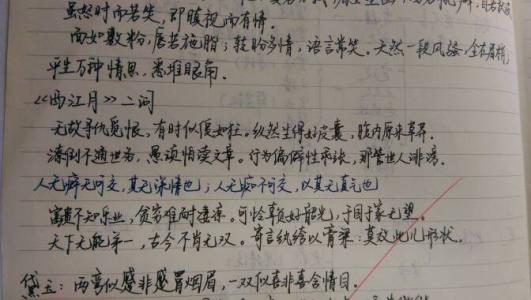 虽怒时而若笑，即瞋视而有情。
面如敷粉，唇若施脂；转盼多情，语言常笑。天然一段风骚，全在眉梢
平生万种情思，悉堆眼角。
《西江月》二词
无故寻仇觅恨，有时似傻如狂。纵然生得好皮囊，腹内原来草莽。
潦倒不通世务，愚顽怕读文章。行为偏僻性乖张，那管世人诽谤。
人无癖不可交，其无深情也；人无痴不可交，以其无真气也
富贵不知乐业，贫穷难耐凄凉。可怜辜负好韶光，于国于家无望。
天下无能第一，古今不肖无双。寄言纨绔以膏粱：莫效此儿形状。
黛玉：两弯似蹙非蹙罥烟眉，一双似喜非喜含情目。